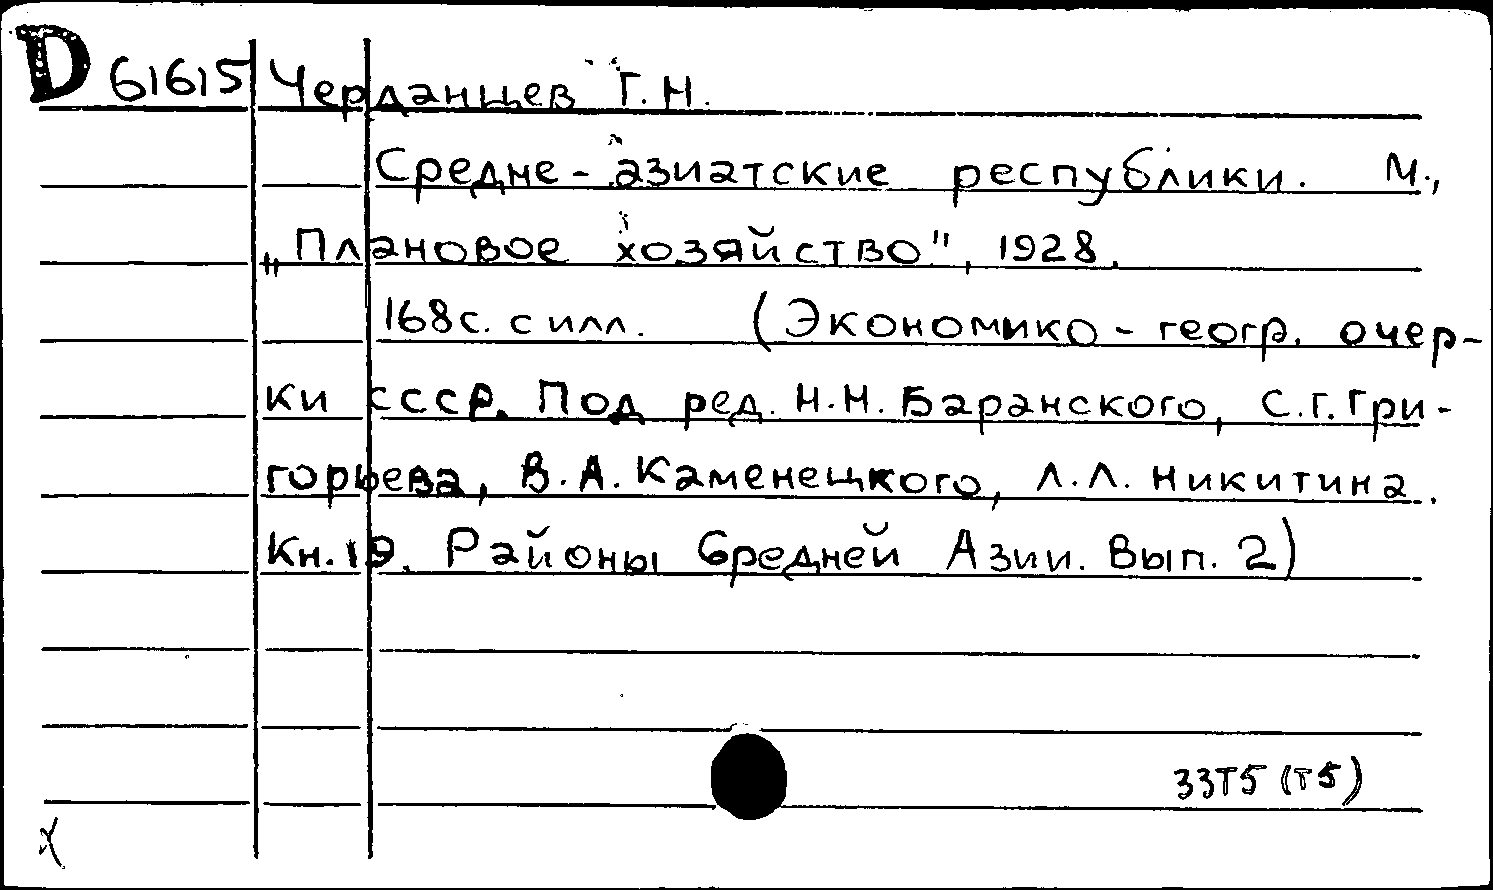 D 61615 Черданцев Г.Н.
Средне-азиатские республики. М.,
„Плановое хозяйство", 1928.
168с. с илл. (Экономико-геогр. очер-
ки СССР. Под ред. Н.Н. Баранского, С.Г. Гри-
горьева, В.А. Каменецкого, Л.Л. Никитина.
Кн. 19. Районы Средней Азии. Вып. 2)
33Т5 (Т5)